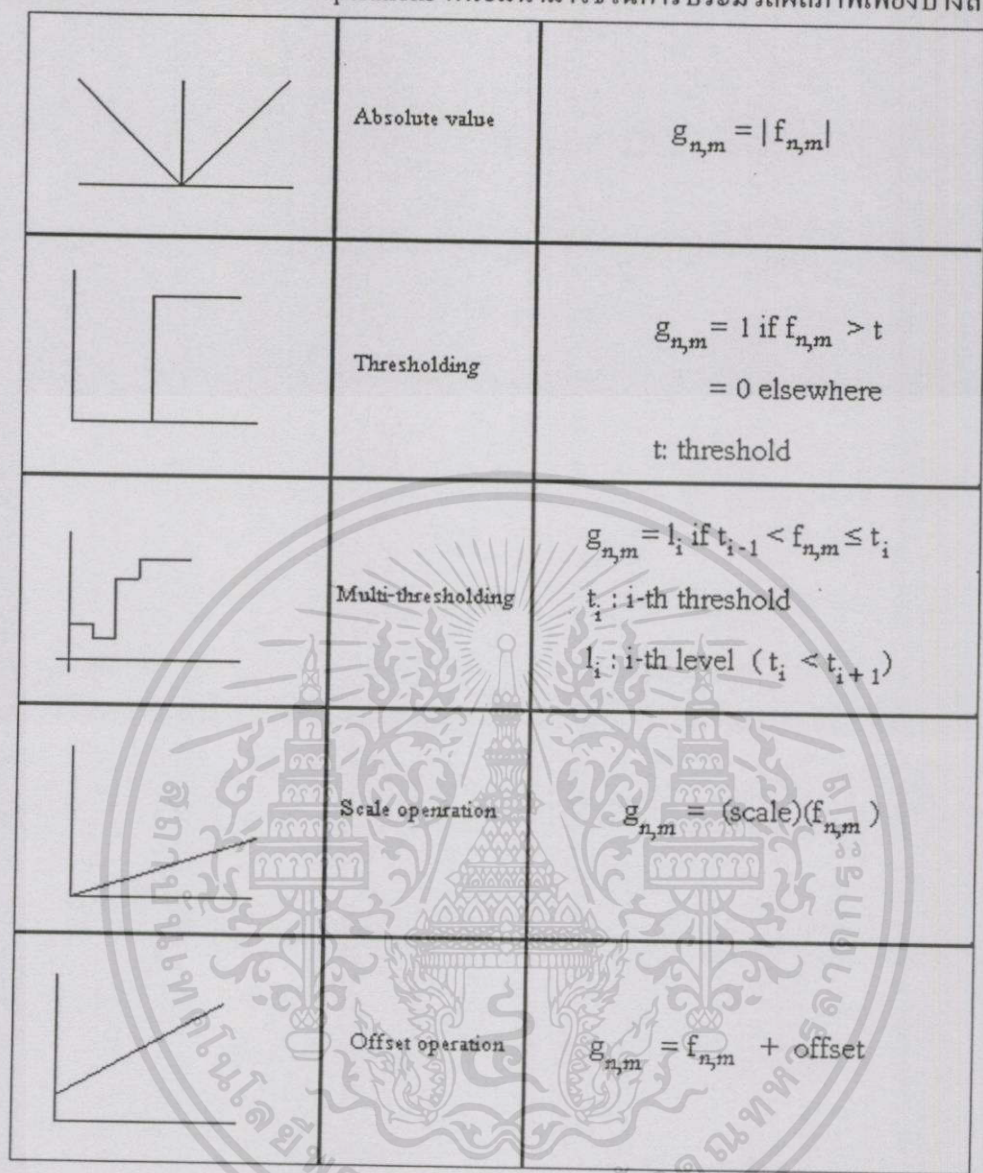 Absolute value
g_{n,m} = |f_{n,m}|
Thresholding
g_{n,m} = 1 if f_{n,m} > t
= 0 elsewhere
t: threshold
Multi-thresholding
g_{n,m} = l_i if t_{i-1} < f_{n,m} ≤ t_i
t_i : i-th threshold
l_i : i-th level (t_i < t_{i+1})
Scale openration
g_{n,m} = (scale)(f_{n,m})
Offset operation
g_{n,m} = f_{n,m} + offset